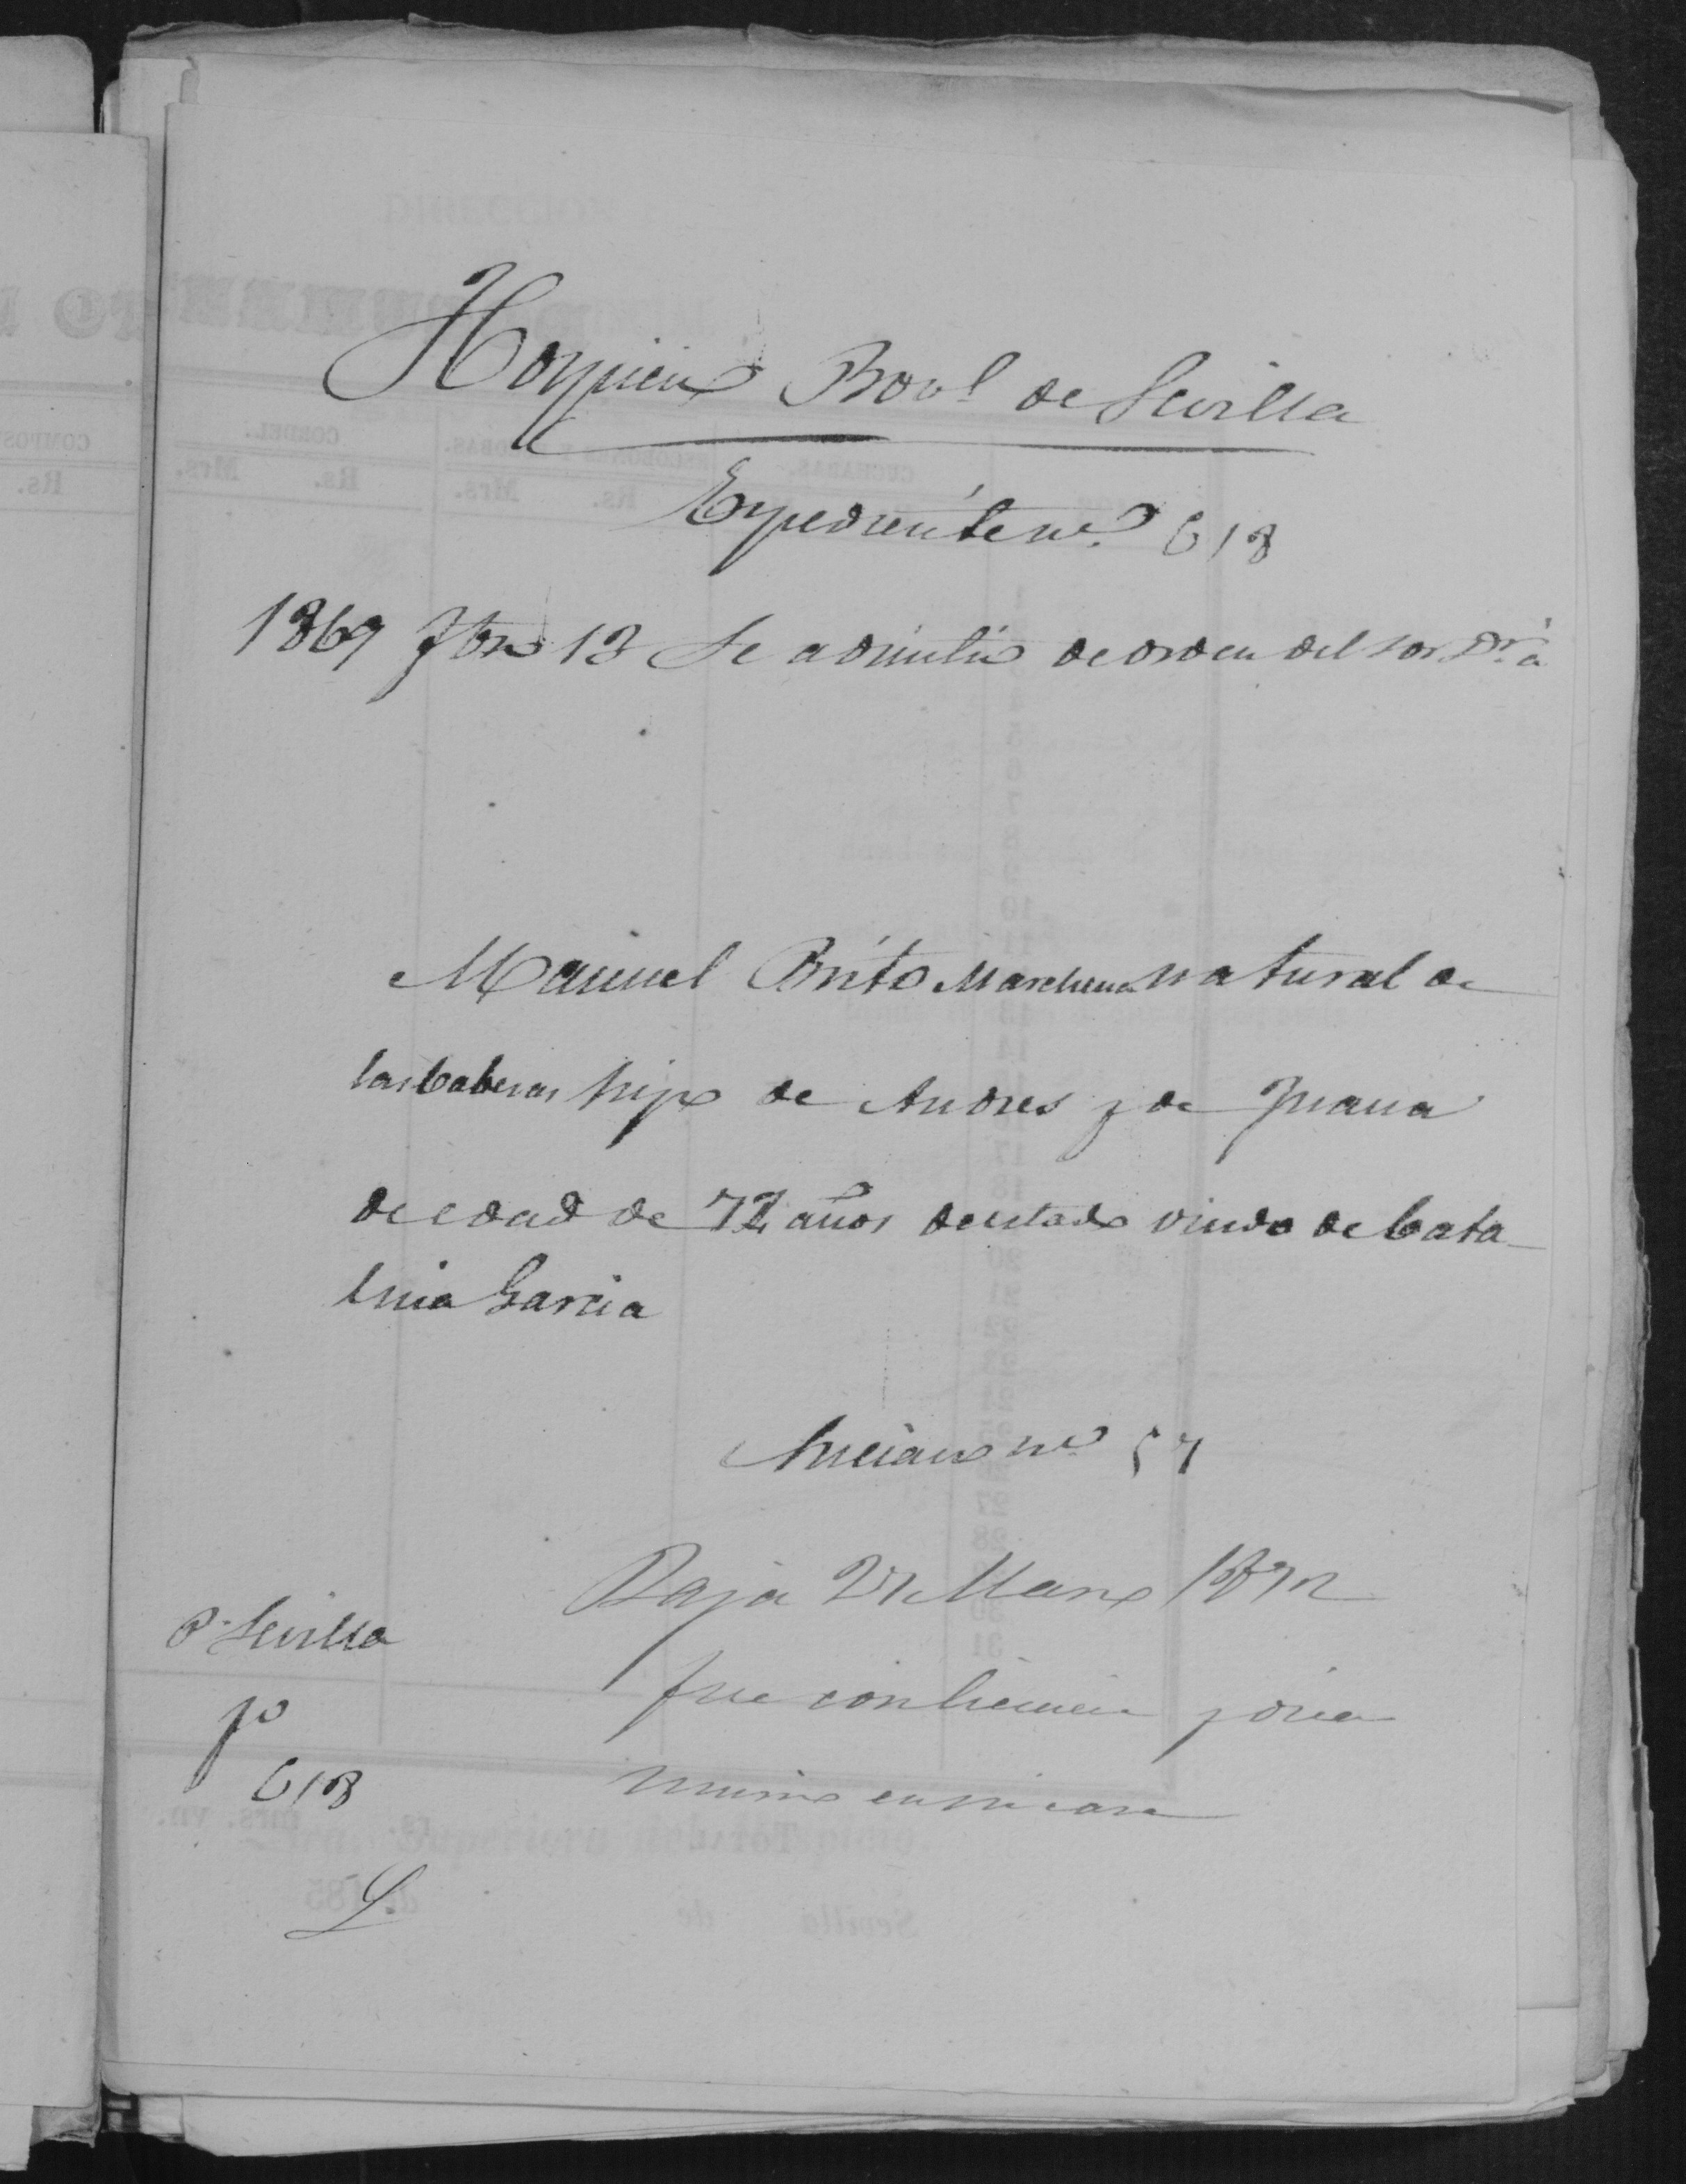 Hospicio Provl de Sevilla
Expediente no. 618
1869 7bre 13 Se admitio de orden del Sor Dr. á
Manuel Brito Marchena natural de
las Cabesas hijo de Andres y de Juana
de edad de 72 años de estado viudo de Cata-
lina Garcia
Anciano no 57
Baja 21 Marzo 1872
fue con licencia y
murio en su casa
P. Sevilla
fo
618
L